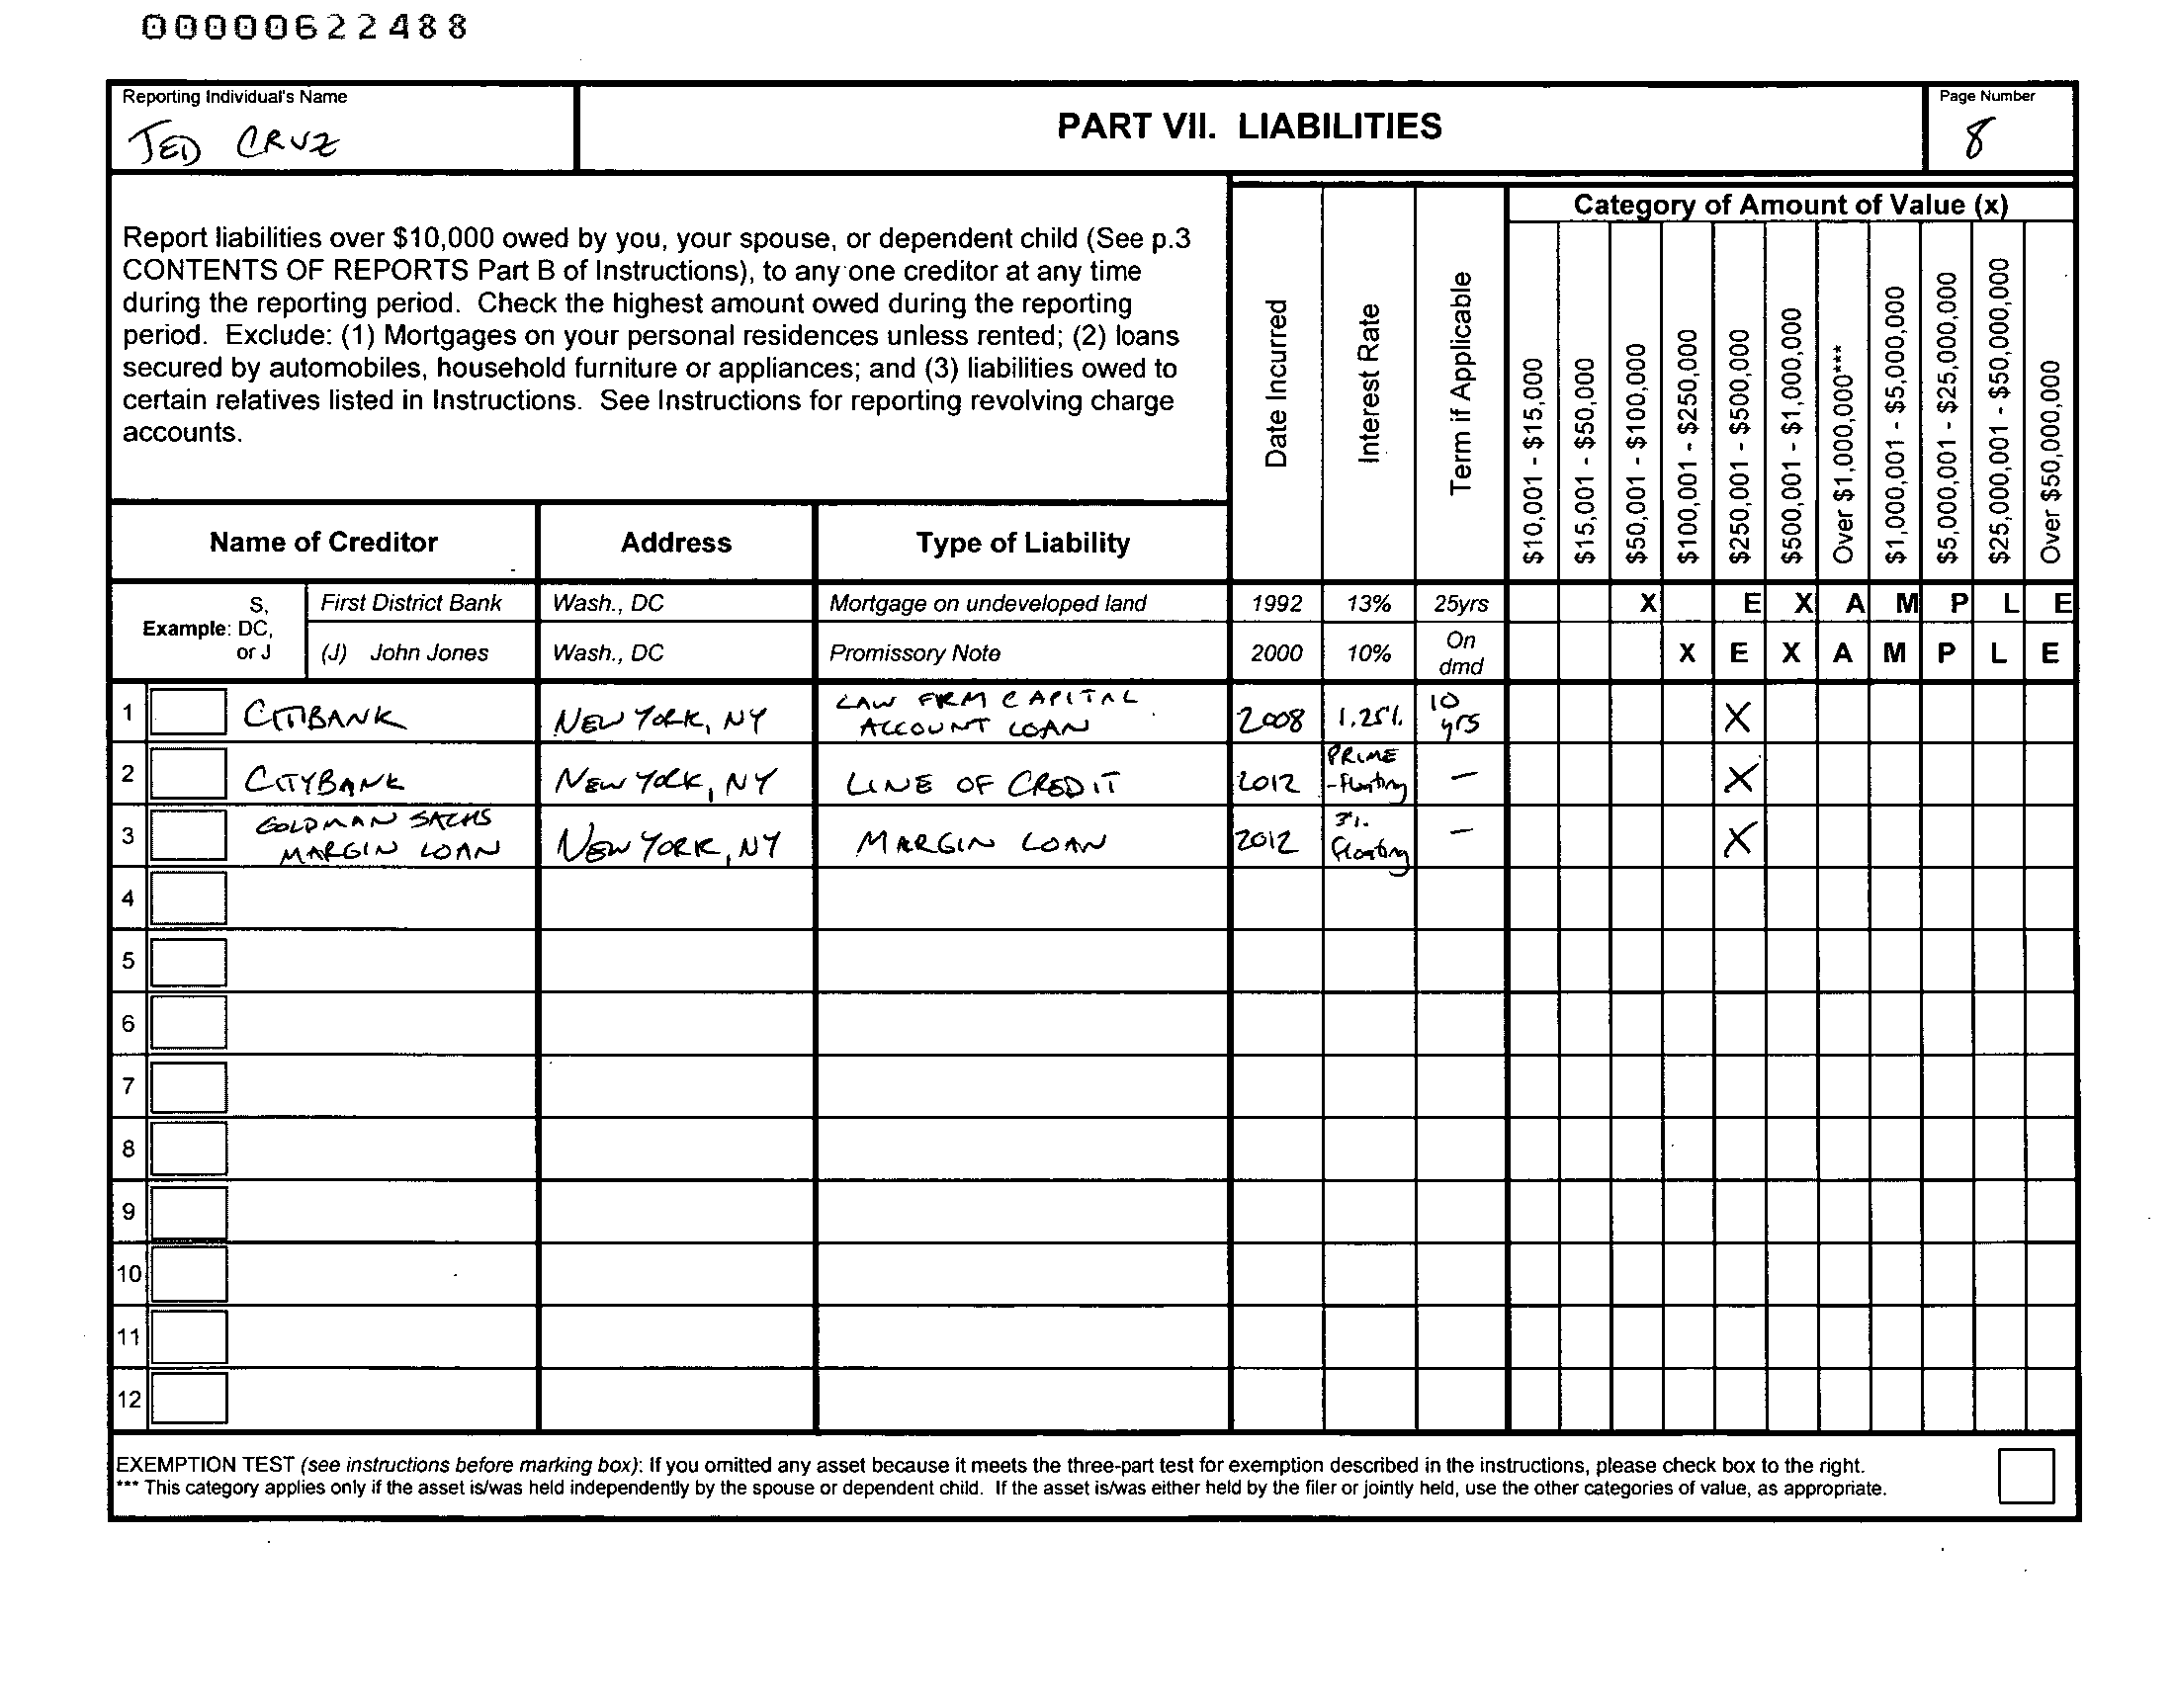 00000622488
Reporting Individual's Name
TED CRUZ
PART VII. LIABILITIES
Page Number
8
Report liabilities over $10,000 owed by you, your spouse, or dependent child (See p.3
CONTENTS OF REPORTS Part B of Instructions), to any one creditor at any time
during the reporting period. Check the highest amount owed during the reporting
period. Exclude: (1) Mortgages on your personal residences unless rented; (2) loans
secured by automobiles, household furniture or appliances; and (3) liabilities owed to
certain relatives listed in Instructions. See Instructions for reporting revolving charge
accounts.
Date Incurred
Interest Rate
Term if Applicable
Category of Amount of Value (x)
$10,001 - $15,000
$15,001 - $50,000
$50,001 - $100,000
$100,001 - $250,000
$250,001 - $500,000
$500,001 - $1,000,000
Over $1,000,000***
$1,000,001 - $5,000,000
$5,000,001 - $25,000,000
$25,000,001 - $50,000,000
Over $50,000,000
Name of Creditor
Address
Type of Liability
Example: S, DC, or J
First District Bank Wash., DC Mortgage on undeveloped land 1992 13% 25yrs X E X A M P L E
(J) John Jones Wash., DC Promissory Note 2000 10% On dmd X E X A M P L E
1 CITIBANK NEW YORK, NY LAW FIRM CAPITAL ACCOUNT LOAN 2008 1.25% 10 yrs X
2 CITYBANK NEW YORK, NY LINE OF CREDIT 2012 PRIME -floating — X
3 GOLDMAN SACHS MARGIN LOAN NEW YORK, NY MARGIN LOAN 2012 3% floating — X
4
5
6
7
8
9
10
11
12
EXEMPTION TEST (see instructions before marking box): If you omitted any asset because it meets the three-part test for exemption described in the instructions, please check box to the right.
*** This category applies only if the asset is/was held independently by the spouse or dependent child. If the asset is/was either held by the filer or jointly held, use the other categories of value, as appropriate.